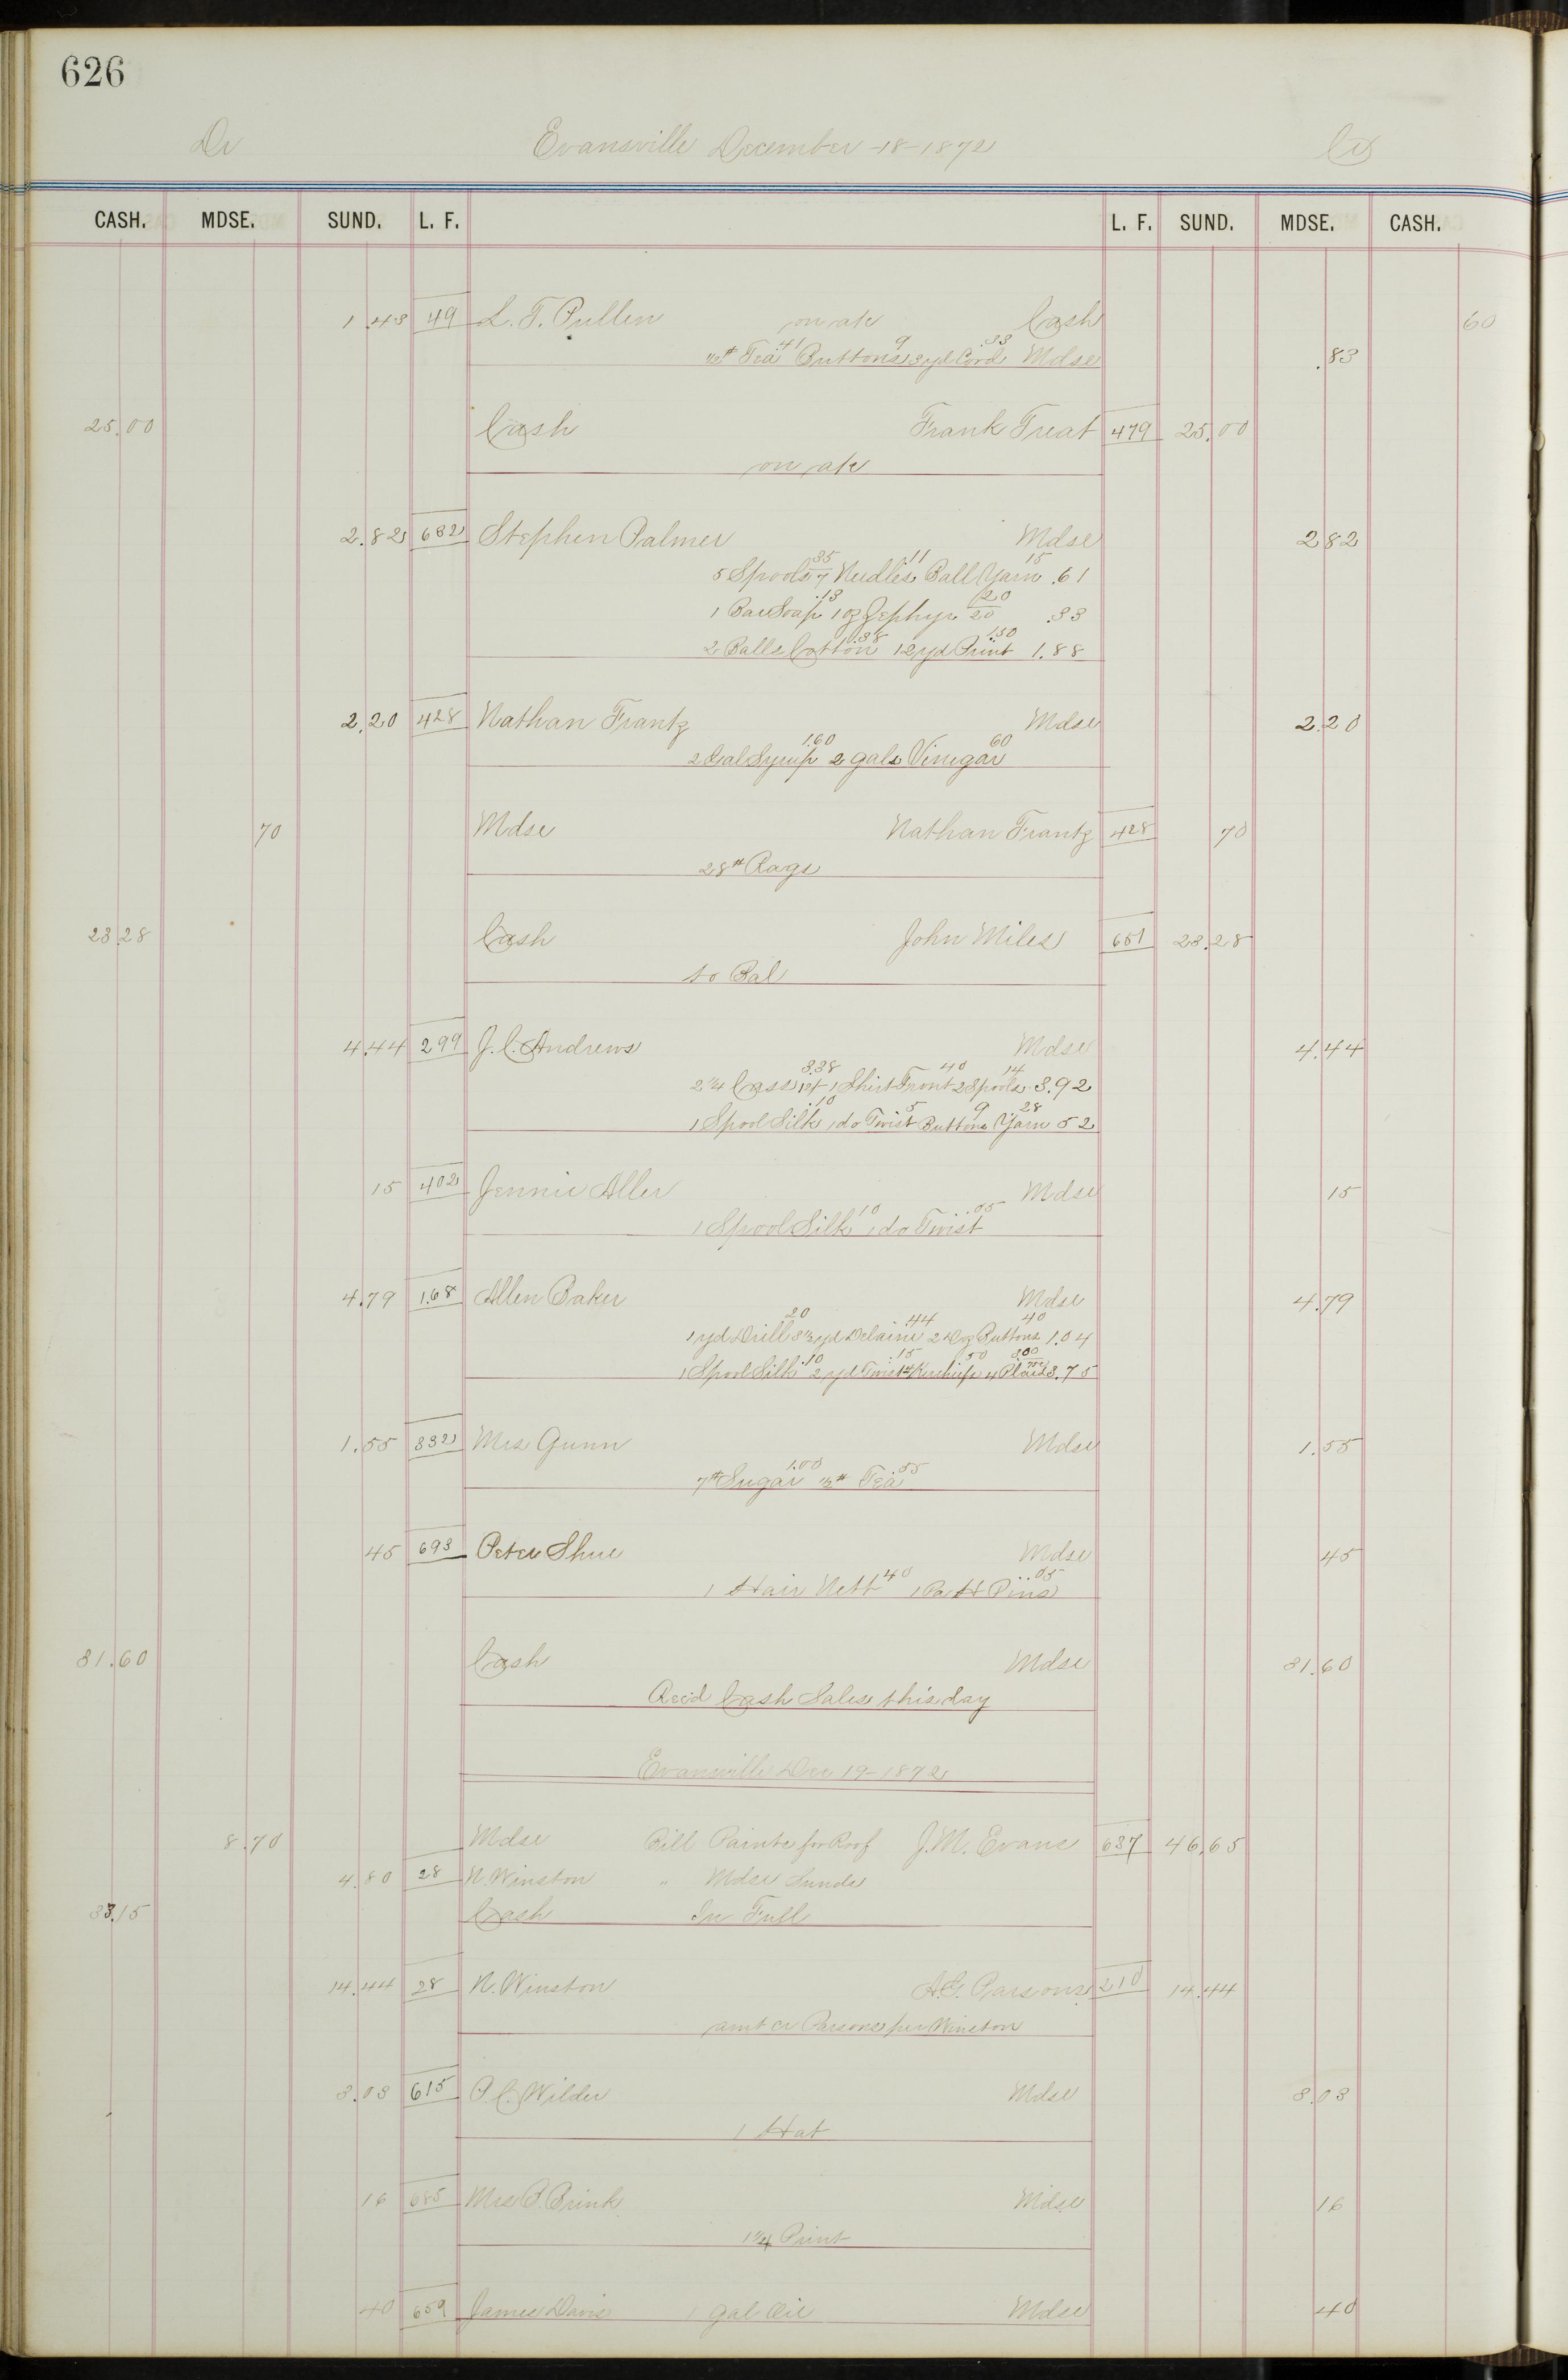 626
Dr Evansville December -18- 1872 Cr
CASH. MDSE. SUND. L. F. L. F. SUND. MDSE. CASH.
1.43 49 L. T. Pullen on a/c Cash 60
1/2# Tea 41 Buttons 9 3 yd Cord .33 Mdse .83
25.00 Cash Frank Treat 479 25.00
on a/c
2.82 682 Stephen Palmer Mdse 2 82
5 Spools 35/7 Needles .11 Ball Yarn 15 .61
1 Bar Soap .13 1 oz Zephyr 20/20 .33
2 Balls Cotton .38 12 yd Print 1.50 1.88
2.20 428 Nathan Frantz Mdse 2.20
2 Gal Syrup 1.60 2 gals Vinegar 60
70 Mdse Nathan Frantz 428 70
28# Rags
23.28 Cash John Miles 651 23.28
to Bal
4.44 299 J. C. Andrews Mdse 4.44
2 1/4 Cass 3.38 1 Shirt Front 40 2 Spools 14 3.92
1 Spool Silk .10 1 do Twist 5 Buttons 9 Yarn .28 52
15 402 Jennie Aller Mdse 15
1 Spool Silk 10 1 do Twist .05
4.79 168 Allen Baker Mdse 4.79
1 yd Drill 20 3 1/2 yd Delaine .44 2 Doz Buttons 40 1.04
1 Spool Silk .10 2 yd Twist .15 Kerchiefs 50 4 Plaid 3.00 3.75
1.55 332 Mrs Gunn Mdse 1.55
7# Sugar 1.00 1/2# Tea .55
45 693 Peter Shue Mdse 45
1 Hair Nett 40 1 Pa H Pins .05
31.60 Cash Mdse 31.60
Recd Cash Sales this day
Evansville Dec 19- 1872
8.70 Mdse Bill Paints for Roof J. M. Evans 637 46.65
4.80 28 N. Winston " Mdse Sunds
33.15 Cash In Full
14.44 28 N. Winston A. G. Parsons 210 14.44
amt cr Parsons per Winston
3.03 615 P. C. Wilder Mdse 3.03
1 Hat
16 685 Mrs P. Brink Mdse 16
1 1/4 Print
40 659 James Davis 1 gal Oil Mdse 40